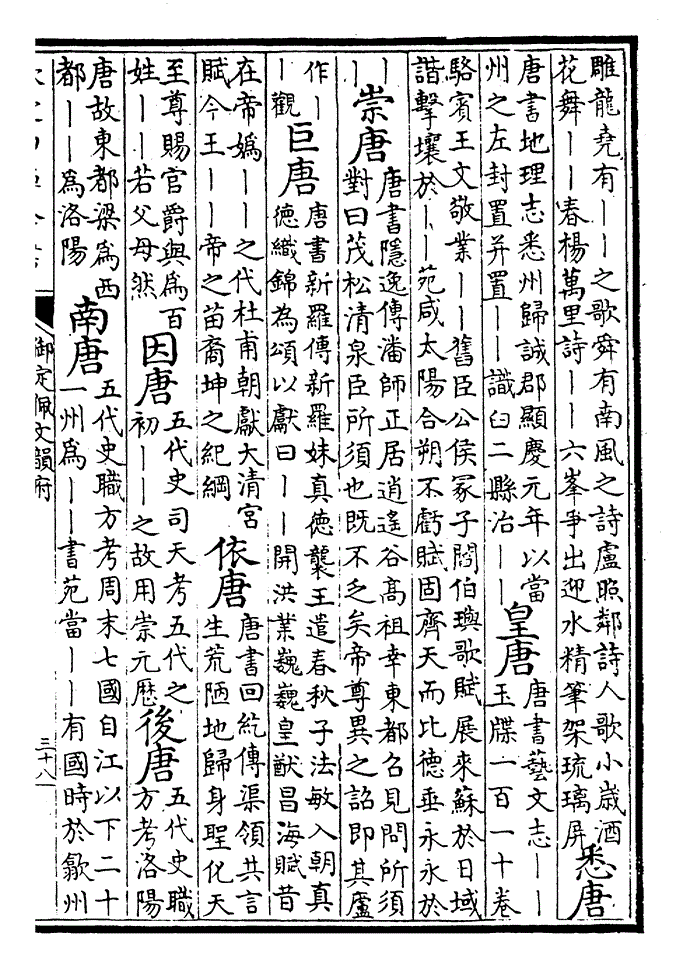 雕龍堯有｜｜之歌舜有南風之詩盧照鄰詩人歌小歲酒
花舞｜｜春楊萬里詩｜｜六峯爭出迎水精筆架琉璃屏
悉唐
唐書地理志悉州歸誠郡顯慶元年以當
州之左封置并置｜｜識臼二縣治｜｜
皇唐
唐書藝文志｜｜
玉牒一百一十卷
駱賓王文敬業｜｜舊臣公侯冢子閻伯璵歌賦展來蘇於日域
諧擊壤於｜｜苑咸太陽合朔不虧賦固齊天而比德垂永永於
｜
｜
崇唐
唐書隱逸傳潘師正居逍遙谷高祖幸東都召見問所須
對曰茂松清泉臣所須也既不乏矣帝尊異之詔即其廬
作｜
｜觀
巨唐
唐書新羅傳新羅妹真德襲王遣春秋子法敏入朝真
德織錦為頌以獻曰｜｜開洪業巍巍皇猷昌海賦昔
在帝嬀｜｜之代杜甫朝獻大清宮
賦今王｜｜帝之苗裔坤之紀綱
依唐
唐書回紇傳渠領共言
生荒陋地歸身聖化天
至尊賜官爵與為百
姓｜｜若父母然
因唐
五代史司天考五代之
初｜｜之故用崇元歷
後唐
五代史職
方考洛陽
唐故東都梁為西
都｜｜為洛陽
南唐
五代史職方考周末七國自江以下二十
一州為｜｜書苑當｜｜有國時於歙州
御定佩文韻府
三十八